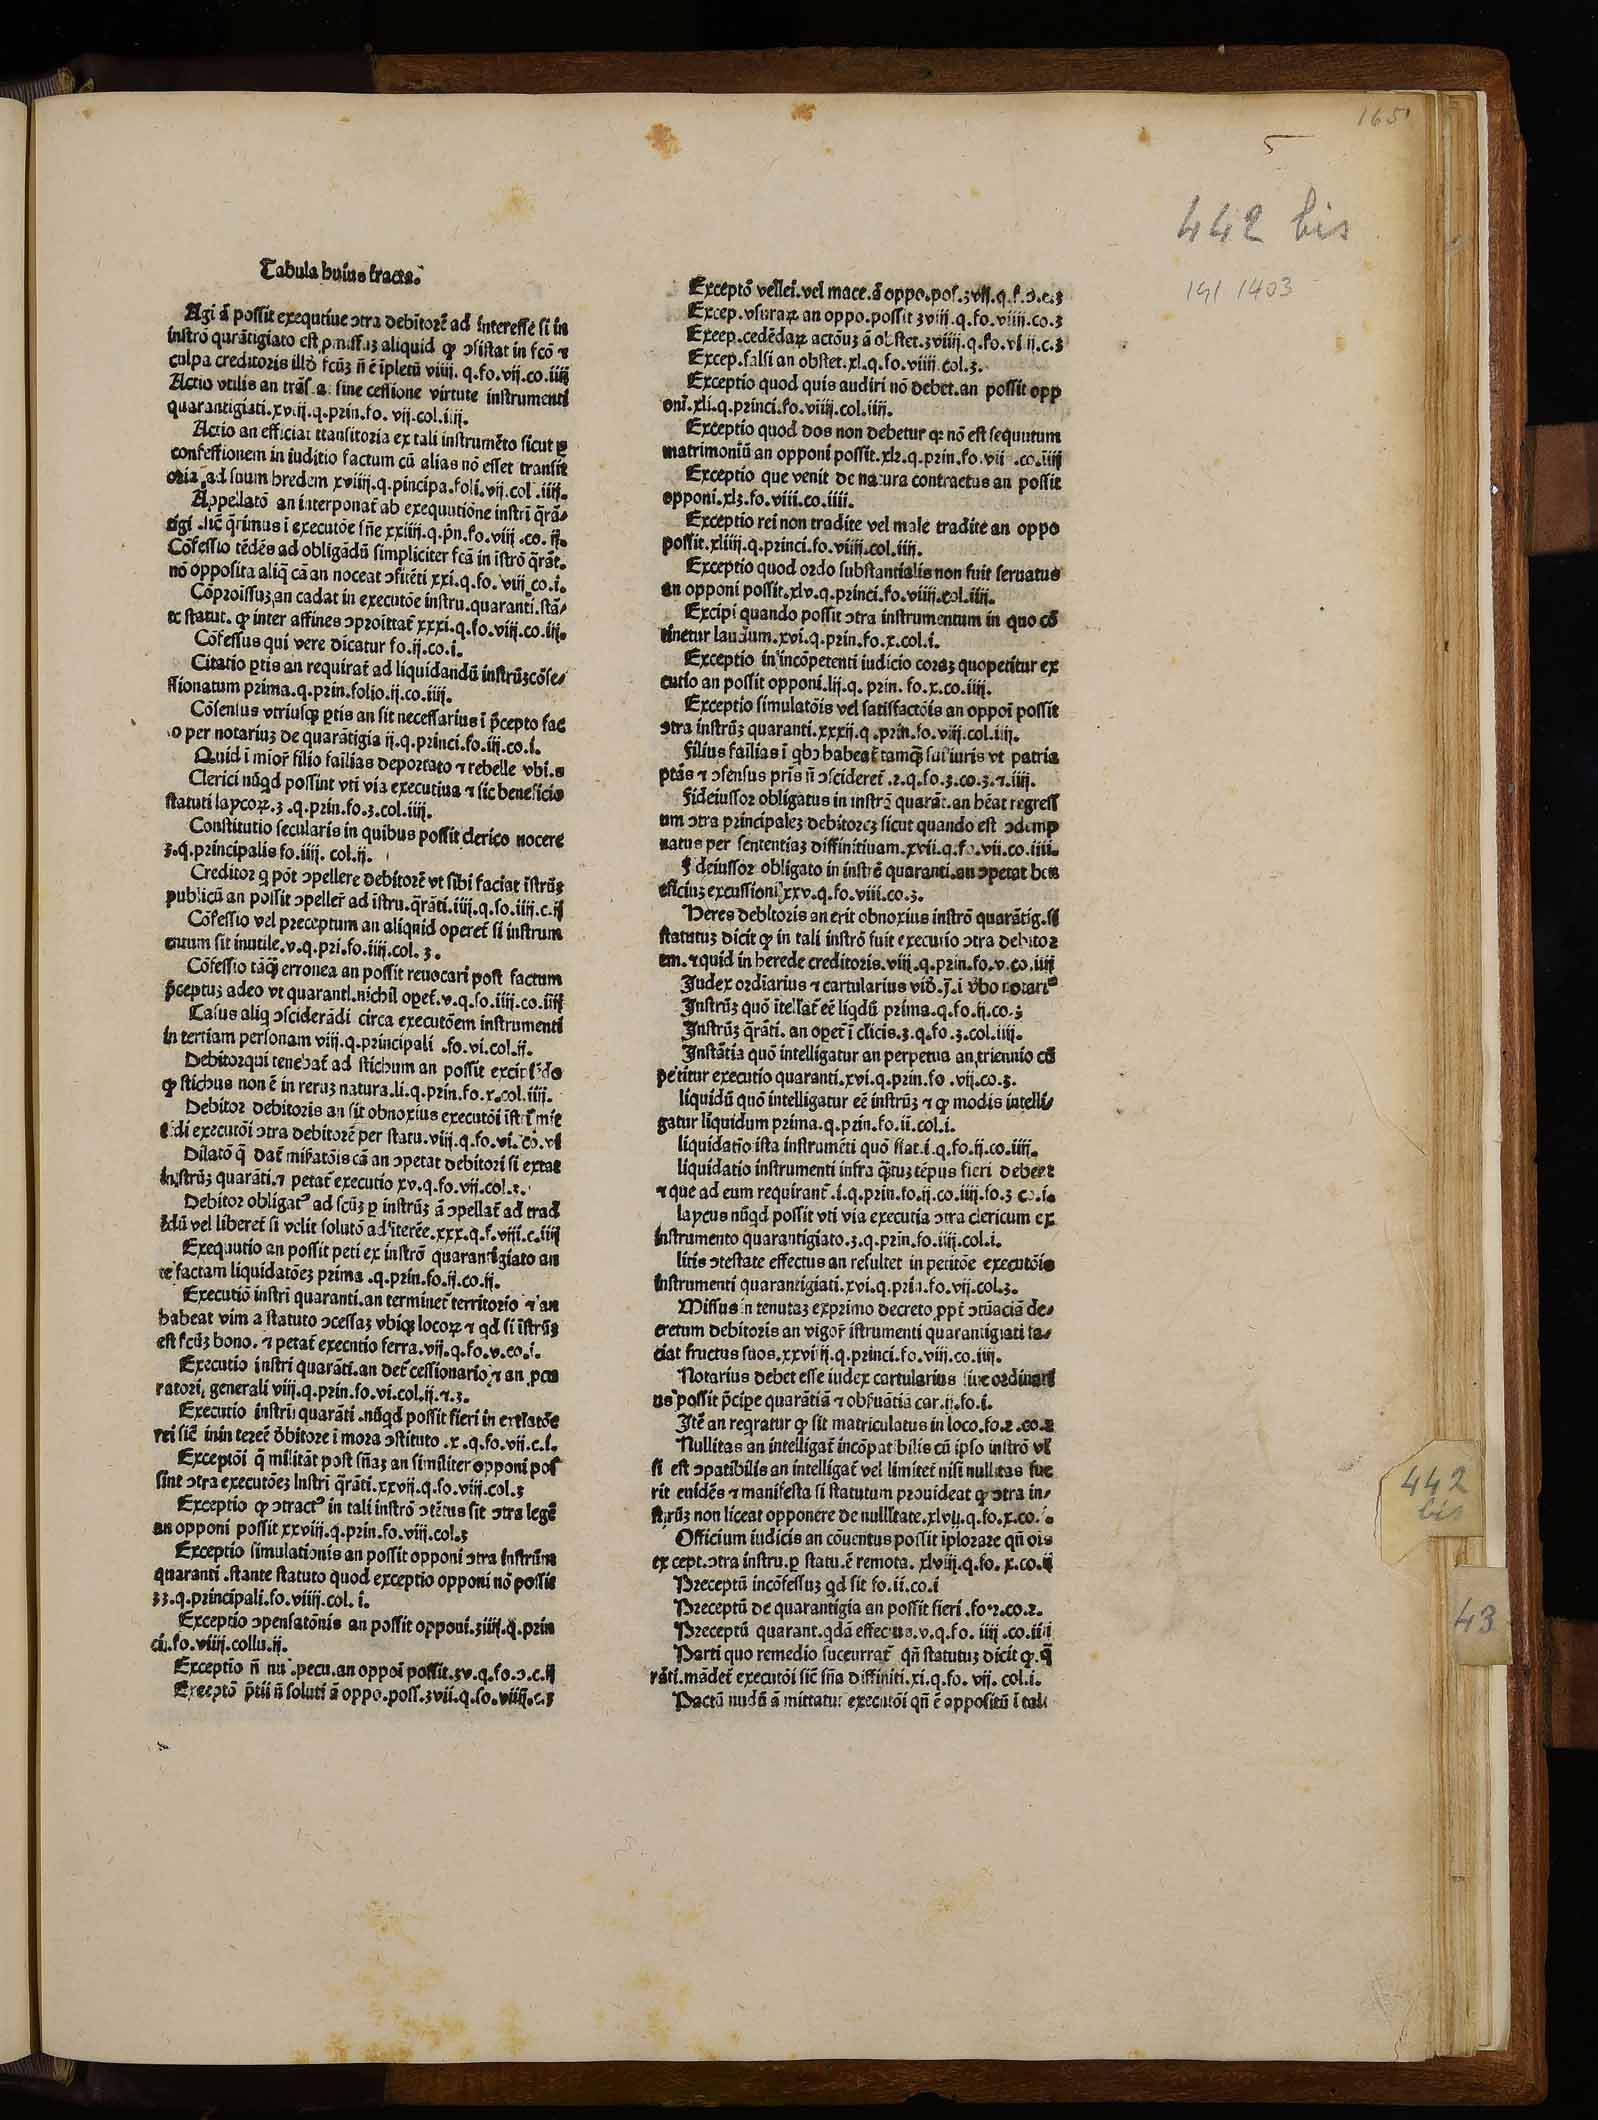 165
5
442 bis
191 1403
Tabula huius tracta.
Agi ā possit exequtiue ɔtra debitorē ad interesse si in
instrō qurātigiato est pmissuȝ aliquid ꝙ ɔsistat in fcō ⁊
culpa creditoris illđ fcūȝ ñ ē īpletū viiij. q.fo.vij.co.iiij
Actio vtilis an trāſ a sine cessione virtute instrumenti
quarantigiati.xviij.q.prin.fo. vij.col.iiij.
Actio an efficiat ttansitoria ex tali instrumēto sicut ꝑ
confessionem in iuditio factum cū alias nō esset transit
oria ad suum hredem xviiij.q.pincipa.foli.vij.col iiij.
Appellatō an interponat̄ ab exequutiōne instri q̄rā⸗
tigi .sic̄ q̄rimus ī executōe sñe xxiiij.q.p̄n.fo.viij .co. ij.
Cōfessio tēdēs ad obligādū simpliciter fcā in īstrō q̄rāt.
nō opposita aliq̄ cā an noceat ɔfitēti xxi.q.fo. viij co.i.
Cōproissuȝ an cadat in executōe instru.quaranti.stā⸗
te statut. ꝙ inter affines ɔproittat̄ xxxi.q.fo.viij.co.iij.
Cōfessus qui vere dicatur fo.ij.co.i.
Citatio ꝑtis an requirat̄ ad liquidandū instrūȝcōfe⸗
ssionatum prima.q.prin.folio.ij.co.iiij.
Cōsensus vtriusqȝ ꝑtis an sit necessarius ī p̄cepto fac
o per notariuȝ de quarātigia ij.q.princi.fo.iij.co.i.
Quid ī mior̄ filio failias deportato ⁊ rebelle vbi.s
Clerici nūqd possint vti via executiua ⁊ sic beneficio
statuti laycoꝝ.3 .q.prin.fo.3.col.iiij.
Constitutio secularis in quibus possit clerico nocere
3.q.principalis fo.iiij. col.ij.
Creditor q pōt ɔpellere debitorē vt sibi faciat īstrūȝ
publicū an possit ɔpeller̄ ad īstru.q̄rāti.iiij.q.fo.iiij.c.ij
Cōfessio vel preceptum an aliquid operet̄ si instrum
entum sit inutile.v.q.pri.fo.iiij.col. 3.
Cōfessio tāqȝ̄ erronea an possit reuocari post factum
p̄ceptuȝ adeo vt quaranti.nichil oꝑet̄.v.q.fo.iiij.co.iiij
Casus aliq ɔsiderādi circa executōem instrumenti
in tertiam personam viij.q.principali .fo.vi.col.ij.
Debitorqui tenebat̄ ad stichum an possit excipiēdo
ꝙ stichus non ē in reruȝ natura.li.q.prin.fo.x.col.iiij.
Debitor debitoris an sit obnoxius executōi īstrī mit
edi executōi ɔtra debitorē per statu.viij.q.fo.vi.co.vi
Dilatō q̄ dat̄ mīratōis cā an ɔpetat debitori si extat
instrūȝ quarāti.⁊ petat̄ executio xv.q.fo.vij.col.3.
Debitor obligatꝰ ad fcūȝ ꝑ instrūȝ ā ɔpellat̄ ad trad
ēdū vel liberet̄ si velit solutō ad iterēe.xxx.q.f.viij.c.iiij
Exequutio an possit peti ex instrō quarantigiato an
te factam liquidatōeȝ prima .q.prin.fo.ij.co.ij.
Executiō instri quaranti.an terminet̄ territorio ⁊ an
habeat vim a statuto ɔcessaȝ vbiqȝ locoꝝ ⁊ qd si īstrūȝ
est fcūȝ bono. ⁊ petat̄ executio ferra.vij.q.fo.v.co.i.
Executio instri quarāti.an det̄ cessionario ⁊ an pcu
ratori generali viij.q.prin.fo.vi.col.ij.⁊.3.
Executio instrū quarāti .nūqd possit fieri in extatōe
rei sic̄ inin terer̄ đbitore ī mora ɔstituto .x .q.fo.vij.c.i.
Exceptōi q̄ militāt post sñaȝ an similiter opponi pos
sint ɔtra executōeȝ Instri q̄rāti.xxvij.q.fo.viij.col.3
Exceptio ꝙ ɔtractꝰ in tali instrō ɔtētus sit ɔtra legē
an opponi possit xxviij.q.prin.fo.viij.col.3
Exceptio simulationis an possit opponi ɔtra instrūm
quaranti .stante statuto quod exceptio opponi nō possit
33.q.principali.fo.viiij.col. i.
Exceptio ɔpensatōnis an possit opponi.3iiij.q.prin
ci.fo.viiij.collu.ij.
Exceptio ñ nu .pecu.an oppoī possit.3v.q.fo.ɔ.c.ij
Exceptō p̄tii ñ soluti ā oppo.poss.3vij.q.fo.viiij.c.3
Exceptō velleī.vel mace.ā oppo.pos.3vij.q.f.ɔ.c.3
Excep.vsuraꝝ an oppo.possit 3viij.q.fo.viiij.co.3
Exeep.cedēdaꝝ actōuȝ ā obstet.3viiij.q.fo.viiij.c.3
Excep.falsi an obstet.xl.q.fo.viiij col.3.
Exceptio quod quis audiri nō debet.an possit opp
oni.xli.q.princi.fo.viiij.col.iiij.
Exceptio quod dos non debetur qꝛ nō est sequutum
matrimoniū an opponi possit.xl2.q.prin.fo.vii .co.iiij
Exceptio que venit de natura contractus an possit
opponi.xl3.fo.viii.co.iiii.
Exceptio rei non tradite vel male tradite an oppo
possit.xliiij.q.princi.fo.viiij.col.iiij.
Exceptio quod ordo substantialis non fuit seruatus
an opponi possit.xlv.q.princi.fo.viiij.col.iiij.
Excipi quando possit ɔtra instrumentum in quo cō
tinetur laudum.xvi.q.prin.fo.x.col.i.
Exceptio in incōpetenti iudicio coraȝ quopetitur ex
cutio an possit opponi.lij.q. prin. fo.x.co.iiij.
Exceptio simulatōis vel satisfactōis an oppoī possit
ɔtra instrūȝ quaranti.xxxij.q .prin.fo.viij.col.iiij.
Filius failias ī qbɔ habeat̄ tamqȝ̄ sui iuris vt patria
ptās ⁊ ɔsensus pris ñ ɔsideret̄ .2.q.fo.3.co.3.⁊.iiij.
Fideiussor obligatus in instrō quarāt.an hēat regress
um ɔtra principaleȝ debitoreȝ sicut quando est ɔdemp
natus per sententiaȝ diffinitiuam.xvii.q.fo.vii.co.iiii.
F deiussor obligato in instrō quaranti.an ɔpetat ben
eficiuȝ excussioni xxv.q.fo.viii.co.3.
Heres debitoris an erit obnoxius instrō quarātig.si
statutuȝ dicit ꝙ in tali instrō fuit executio ɔtra debitor
em.⁊quid in herede creditoris.viij.q.prin.fo.v.co.iiij
Judex ordiarius ⁊ cartularius viđ.j.i v̄bo notariꝰ
Instrūȝ quō ītellat̄ eē liqdū prima.q.fo.ij.co.3
Instrūȝ q̄rāti. an oꝑet̄ ī clicis.3.q.fo.3.col.iiij.
Instātia quō intelligatur an perpetua an triennio cū
petitur executio quaranti.xvi.q.prin.fo .vij.co.3.
liquidū quō intelligatur eē instrūȝ ⁊ ꝙ modis intelli⸗
gatur liquidum prima.q.prin.fo.ii.col.i.
liquidatio ista instrumēti quō fiat.i.q.fo.ij.co.iiij.
liquidatio instrumenti infra q̄tuȝ tēpus fieri debeat
⁊ que ad eum requirant̄.i.q.prin.fo.ij.co.iiij.fo.3 co.i.
laycus nūqd possit vti via executia ɔtra clericum ex
instrumento quarantigiato.3.q.prin.fo.iiij.col.i.
litis ɔtestate effectus an resultet in petitōe executōis
instrumenti quarantigiati.xvi.q.prin.fo.vij.col.3.
Missus in tenutaȝ exprimo decreto ꝓpt̄ ɔtūaciā de⸗
cretum debitoris an vigor̄ īstrumenti quarantigiati fa⸗
ciat fructus suos.xxviiij.q.princi.fo.viij.co.iiij.
Notarius debet esse iudex cartularius siue ordinari
us possit p̄cipe quarātiā ⁊ obſuātiā car.ij.fo.i.
Itē an reqratur ꝙ sit matriculatus in loco.fo.2.co.2
Nullitas an intelligat̄ incōpatibilis cū ipso instrō vl
si est ɔpatibilis an intelligat̄ vel limitet̄ nisi nullitas fue
rit euidēs ⁊ manifesta si statutum prouideat ꝙ ɔtra in⸗
strūȝ non liceat opponere de nullitate.xlvij.q.fo.x.co. i.
Officium iudicis an cōuentus possit īplorare qñ ois
ex cept.ɔtra instru.ꝑ statu.ē remota. xlviij.q.fo. x.co.ij
Preceptū incōfessuȝ qd sit fo.ii.co.i
Preceptū de quarantigia an possit fieri .fo.2.co.2.
Preceptū quarant.qdā effectus.v.q.fo. iiij .co.iiij
Parti quo remedio sucurrat̄ qñ statutuȝ dicit ꝙ.q̄
rāti.mādet̄ executōi sic̄ sña diffiniti.xi.q.fo. vij. col.i.
Pactū nudū ā mittatur executōi qñ ē appositū ī tali
442
bis
43